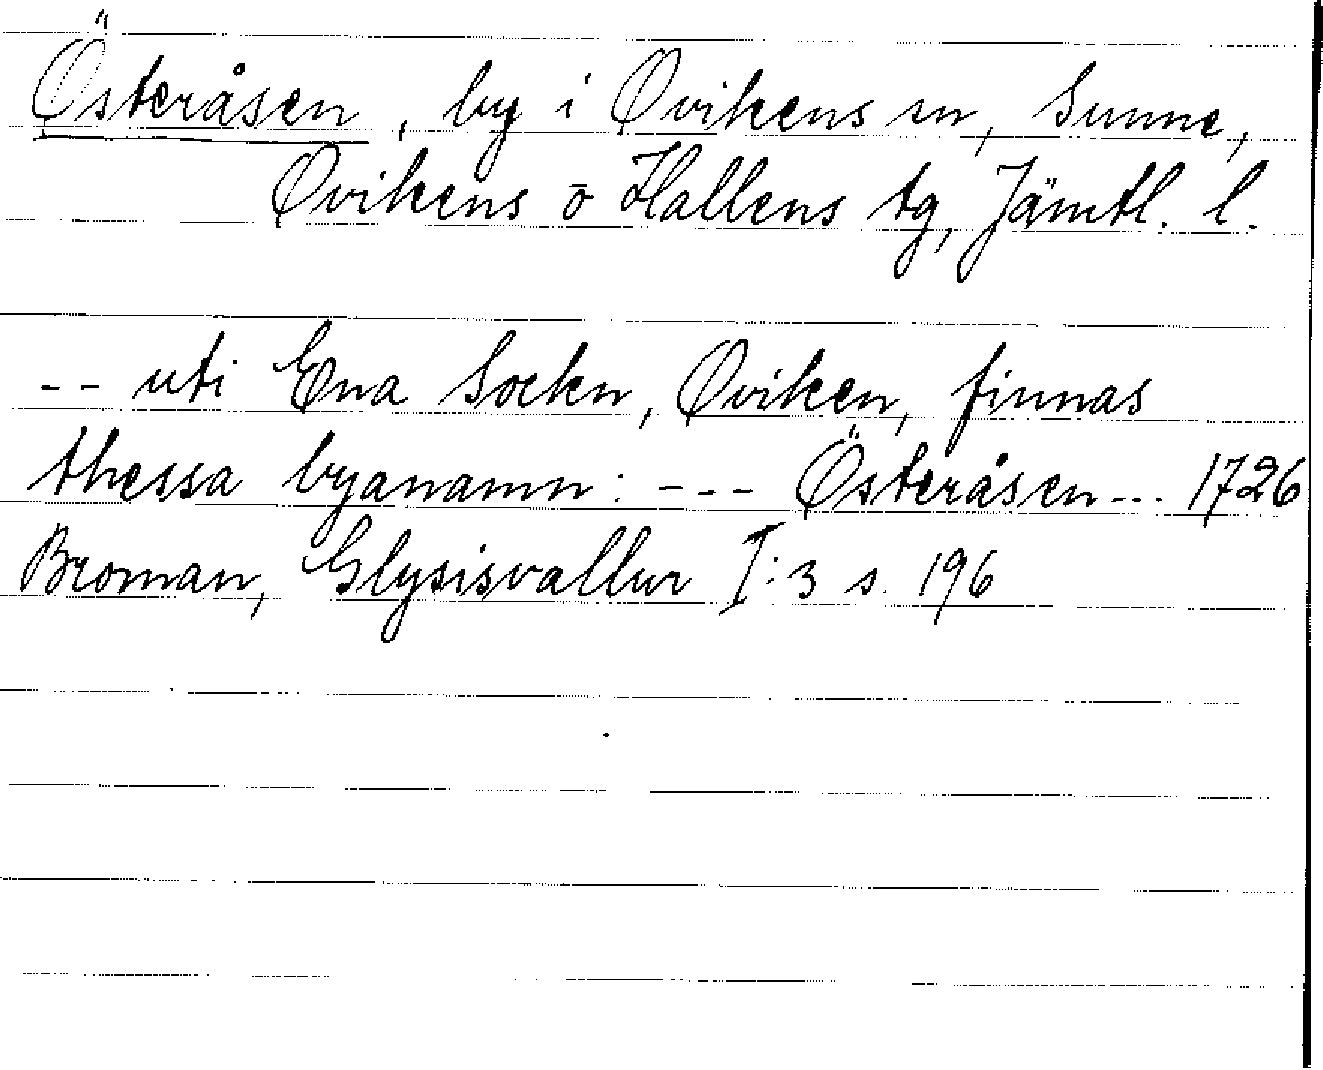 Österåsen, by i Ovikens sn, Sunne,
Ovikens o Hallens tg, Jämtl. l.
-- uti Ena Sockn, Oviken, finnas
thessa byanamn: --- Österåsen--- 1726
Broman, Glysisvallur I:3 s. 196